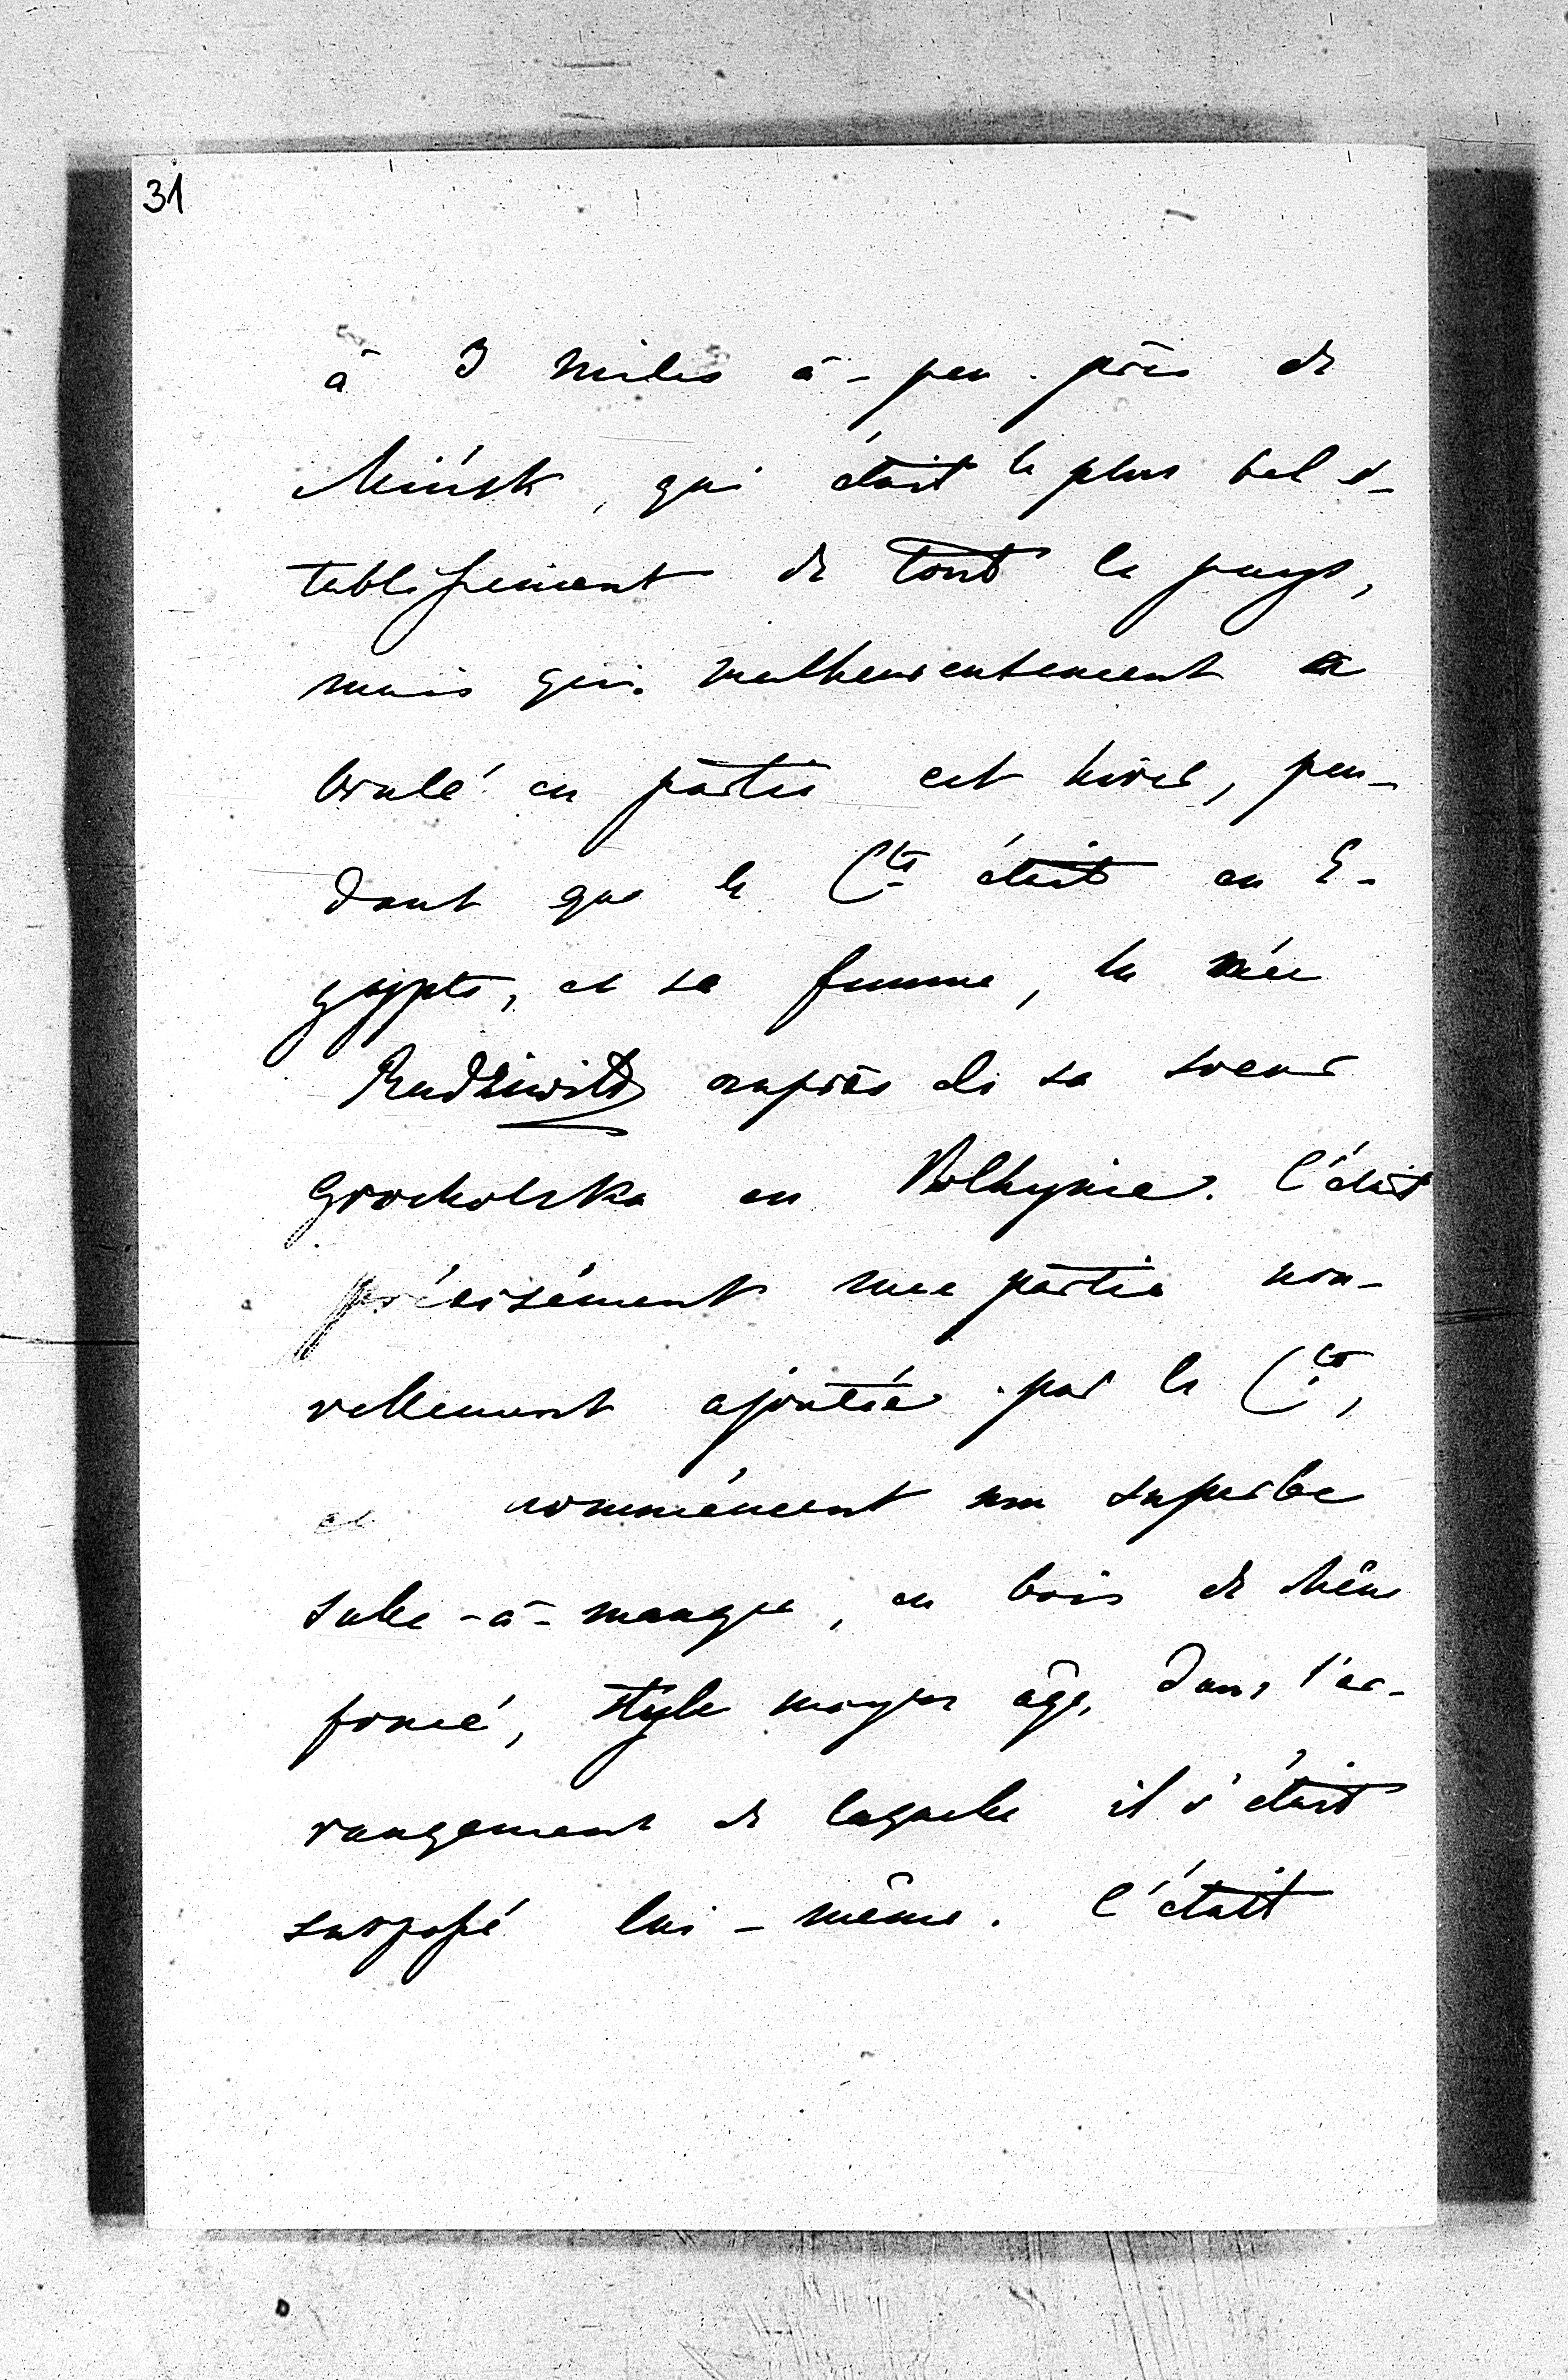 31
à 3 miles à-peu-près de
Mińsk, qui était le plus bel é-
tablissement de tout le pays,
mais qui malheureusement a
brulé en partie cet hiver, pen-
dant que le Cte était en E-
gypte, et sa femme, la née
Radziwiłł auprès de sa soeur
Grocholska en Volhynie. C'était
précisément une partie nou-
vellement ajoutée par le Cte,
et nommément une superbe
salle-à-manger, en bois de chêne
foncé, style moyen âge, dans l'ar-
rangement de laquelle il s'était
surpassé lui-même. C'était